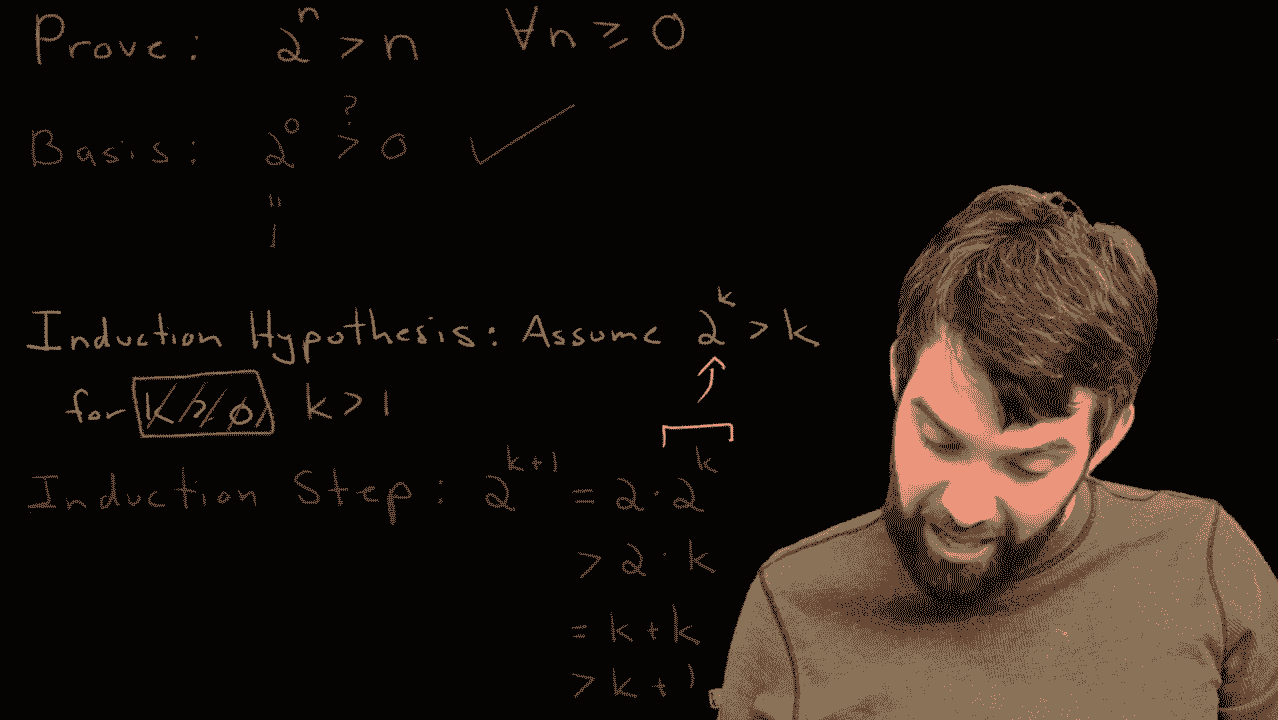 Prove: 2^n > n ∀n ≥ 0
?
Basis: 2^0 > 0 ✓
"
1
Induction Hypothesis: Assume 2^k > k
for k ≥ 0 k > 1
Induction Step: 2^(k+1) = 2·2^k
> 2·k
= k+k
> k+1